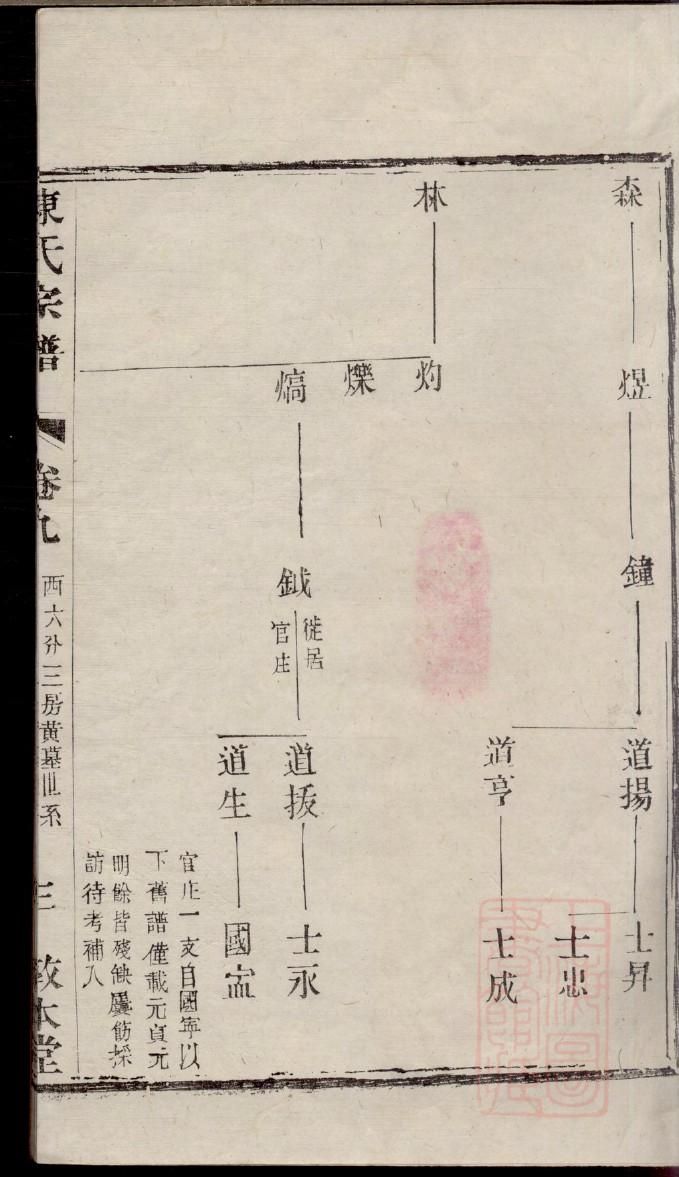 森
煜
鐘
道揚
士昇
士忠
道亨
士成
林
灼
爍
熇
鉞
徙居
官庄
道振
士永
道生
國寍
官庄一支自國寧以
下舊譜僅載元貞元
明餘皆殘缺屢飭採
訪待考補入
陳氏宗譜
卷九
西六分三房黃墓世系
三
敦本堂